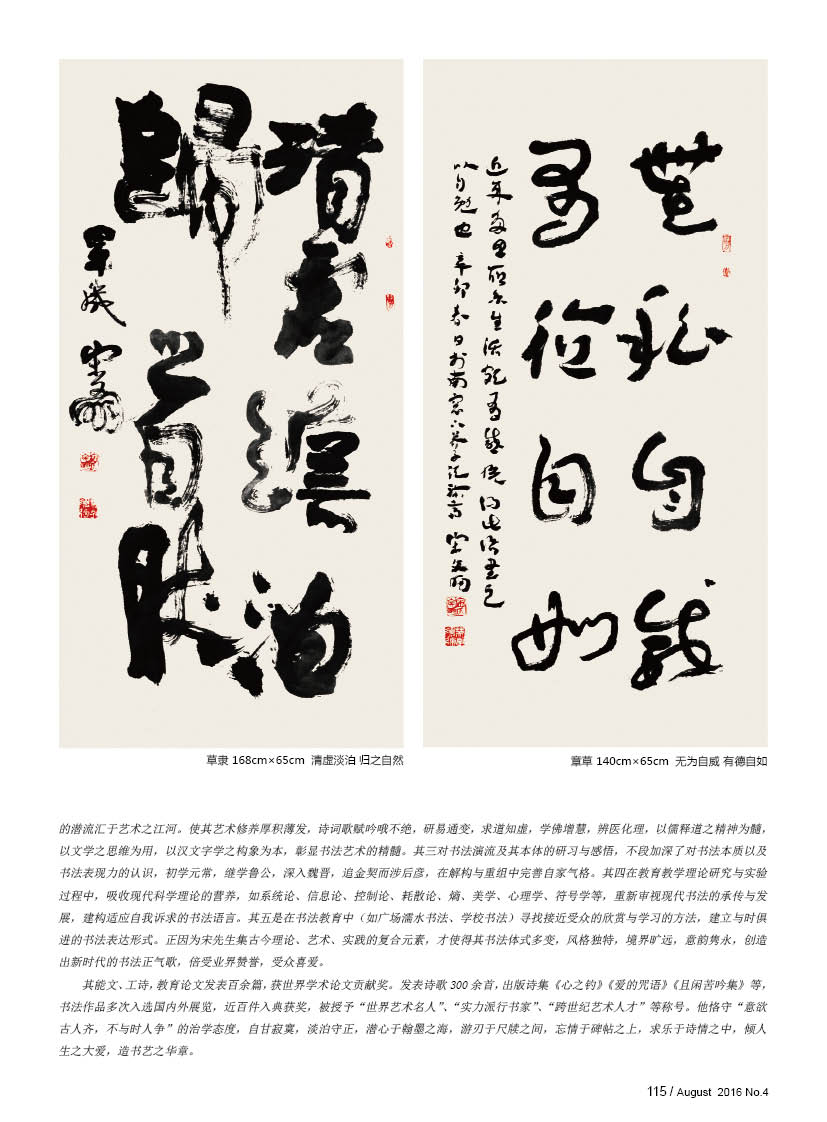 清虚澹泊
歸之自然
無私自威
有德自如
草隶 168cm×65cm 清虚淡泊 归之自然
章草 140cm×65cm 无为自威 有德自如
的潜流汇于艺术之江河。使其艺术修养厚积薄发，诗词歌赋吟哦不绝，研易通变，求道知虚，学佛增慧，辨医化理，以儒释道之精神为髓，
以文学之思维为用，以汉文字学之构象为本，彰显书法艺术的精髓。其三对书法演流及其本体的研习与感悟，不段加深了对书法本质以及
书法表现力的认识，初学元常，继学鲁公，深入魏晋，追金契而涉后彦，在解构与重组中完善自家气格。其四在教育教学理论研究与实验
过程中，吸收现代科学理论的营养，如系统论、信息论、控制论、耗散论、熵、美学、心理学、符号学等，重新审视现代书法的承传与发
展，建构适应自我诉求的书法语言。其五是在书法教育中（如广场濡水书法、学校书法）寻找接近受众的欣赏与学习的方法，建立与时俱
进的书法表达形式。正因为宋先生集古今理论、艺术、实践的复合元素，才使得其书法体式多变，风格独特，境界旷远，意韵隽永，创造
出新时代的书法正气歌，倍受业界赞誉，受众喜爱。
其能文、工诗，教育论文发表百余篇，获世界学术论文贡献奖。发表诗歌 300 余首，出版诗集《心之钓》《爱的咒语》《且闲苦吟集》等，
书法作品多次入选国内外展览，近百件入典获奖，被授予“世界艺术名人”、“实力派行书家”、“跨世纪艺术人才”等称号。他恪守“意欲
古人齐，不与时人争”的治学态度，自甘寂寞，淡泊守正，潜心于翰墨之海，游刃于尺牍之间，忘情于碑帖之上，求乐于诗情之中，倾人
生之大爱，造书艺之华章。
115 / August 2016 No.4